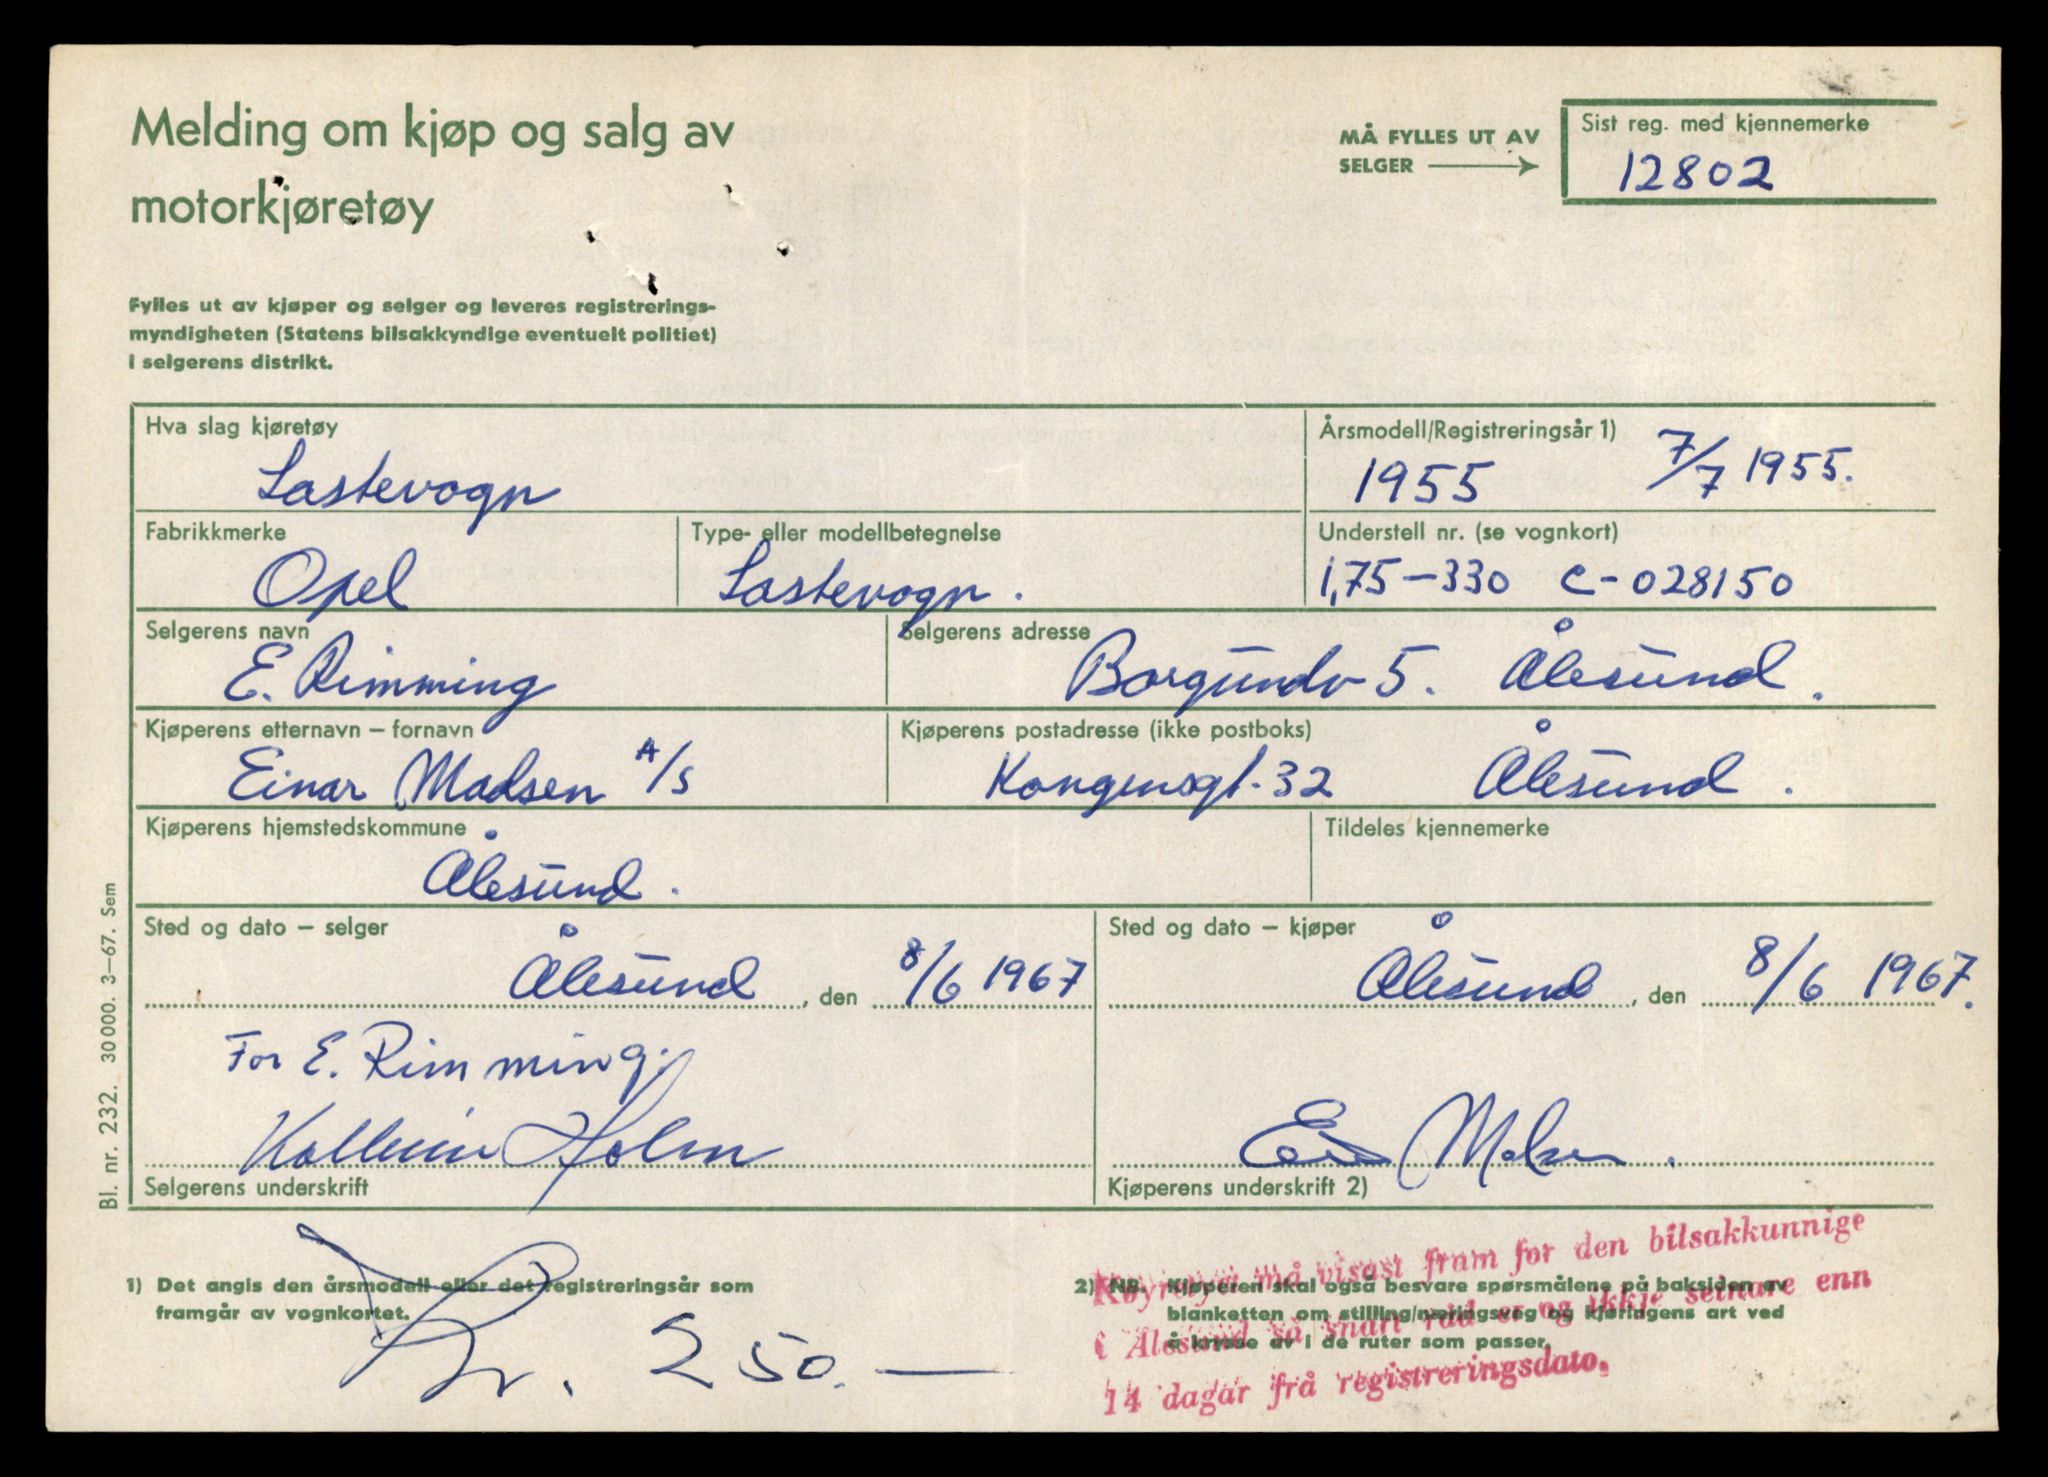 Melding om kjøp og salg av
motorkjøretøy
MÅ FYLLES UT AV
SELGER
Sist reg. med kjennemerke
12802
Fylles ut av kjøper og selger og leveres registrerings-
myndigheten (Statens bilsakkyndige eventuelt politiet)
i selgerens distrikt.
Hva slag kjøretøy
Lastevogn
Årsmodell/Registreringsår 1)
1955 7/7 1955.
Fabrikkmerke
Opel
Type- eller modellbetegnelse
Lastevogn.
Understell nr. (se vognkort)
1,75-330 C-028150
Selgerens navn
E. Rimming
Selgerens adresse
Borgundv 5. Ålesund.
Kjøperens etternavn – fornavn
Einar Madsen A/S
Kjøperens postadresse (ikke postboks)
Kongensgt. 32 Ålesund.
Kjøperens hjemstedskommune
Ålesund.
Tildeles kjennemerke
Sted og dato – selger
Ålesund, den 8/6 1967
Sted og dato – kjøper
Ålesund, den 8/6 1967.
For E. Rimming.
Holm
Selgerens underskrift
Kjøperens underskrift 2)
Bl. nr. 232. 30000. 3–67. Sem
1) Det angis den årsmodell eller det registreringsår som
framgår av vognkortet.
Kr. 250.—
2) NB. Kjøperen skal også besvare spørsmålene på baksiden av
blanketten om stilling/næringsveg og kjøringens art ved
å krysse av i de ruter som passer.
Køyretøyet må visast fram for den bilsakkunnige
i Ålesund så snart råd er og ikkje seinare enn
14 dagar frå registreringsdato.